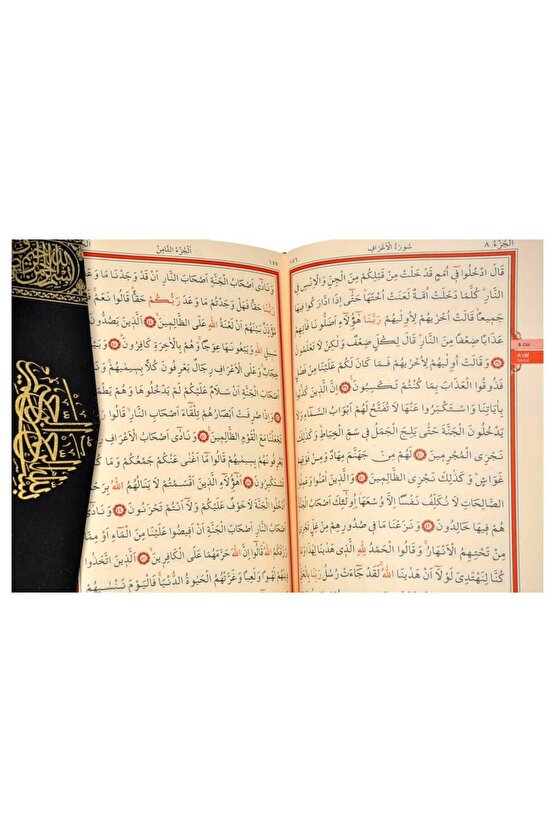 الجزء ٨
سورة الاعراف
١٥٦
قَالَ ادْخُلُوا فٓي اُمَمٍ قَدْ خَلَتْ مِنْ قَبْلِكُمْ مِنَ الْجِنِّ وَالْاِنْسِ فِي
النَّارِ كُلَّمَا دَخَلَتْ اُمَّةٌ لَعَنَتْ اُخْتَهَا حَتّٰٓى اِذَا ادَّارَكُوا فٖيهَا
جَمٖيعًا قَالَتْ اُخْرٰيهُمْ لِاُولٰيهُمْ رَبَّنَا هٰٓؤُلَٓاءِ اَضَلُّونَا فَاٰتِهِمْ
عَذَابًا ضِعْفًا مِنَ النَّارِ قَالَ لِكُلٍّ ضِعْفٌ وَلٰكِنْ لَا تَعْلَمُونَ
وَقَالَتْ اُولٰيهُمْ لِاُخْرٰيهُمْ فَمَا كَانَ لَكُمْ عَلَيْنَا مِنْ فَضْلٍ
فَذُوقُوا الْعَذَابَ بِمَا كُنْتُمْ تَكْسِبُونَ اِنَّ الَّذٖينَ كَذَّبُوا
بِاٰيَاتِنَا وَاسْتَكْبَرُوا عَنْهَا لَا تُفَتَّحُ لَهُمْ اَبْوَابُ السَّمَٓاءِ وَلَا
يَدْخُلُونَ الْجَنَّةَ حَتّٰى يَلِجَ الْجَمَلُ فٖي سَمِّ الْخِيَاطِ وَكَذٰلِكَ
نَجْزِي الْمُجْرِمٖينَ لَهُمْ مِنْ جَهَنَّمَ مِهَادٌ وَمِنْ فَوْقِهِمْ
غَوَاشٍ وَكَذٰلِكَ نَجْزِي الظَّالِمٖينَ وَالَّذٖينَ اٰمَنُوا وَعَمِلُوا
الصَّالِحَاتِ لَا نُكَلِّفُ نَفْسًا اِلَّا وُسْعَهَا اُولٰٓئِكَ اَصْحَابُ الْجَنَّةِ
هُمْ فٖيهَا خَالِدُونَ وَنَزَعْنَا مَا فٖي صُدُورِهِمْ مِنْ غِلٍّ تَجْرٖي
مِنْ تَحْتِهِمُ الْاَنْهَارُ وَقَالُوا الْحَمْدُ لِلّٰهِ الَّذٖي هَدٰينَا لِهٰذَا وَمَا
كُنَّا لِنَهْتَدِيَ لَوْلَٓا اَنْ هَدٰينَا اللّٰهُ لَقَدْ جَٓاءَتْ رُسُلُ رَبِّنَا بِالْحَقِّ
8. Cüz
A'râf
١٥٧
الجزء الثامن
وَنَادٰٓى اَصْحَابُ الْجَنَّةِ اَصْحَابَ النَّارِ اَنْ قَدْ وَجَدْنَا مَا وَعَدَنَا
رَبُّنَا حَقًّا فَهَلْ وَجَدْتُمْ مَا وَعَدَ رَبُّكُمْ حَقًّا قَالُوا نَعَمْ
مُؤَذِّنٌ بَيْنَهُمْ اَنْ لَعْنَةُ اللّٰهِ عَلَى الظَّالِمٖينَ اَلَّذٖينَ يَصُدُّونَ
سَبٖيلِ اللّٰهِ وَيَبْغُونَهَا عِوَجًا وَهُمْ بِالْاٰخِرَةِ كَافِرُونَ
حِجَابٌ وَعَلَى الْاَعْرَافِ رِجَالٌ يَعْرِفُونَ كُلًّا بِسٖيمٰيهُمْ
اَصْحَابَ الْجَنَّةِ اَنْ سَلَامٌ عَلَيْكُمْ لَمْ يَدْخُلُوهَا وَهُمْ يَطْمَعُونَ
وَاِذَا صُرِفَتْ اَبْصَارُهُمْ تِلْقَٓاءَ اَصْحَابِ النَّارِ قَالُوا رَبَّنَا
تَجْعَلْنَا مَعَ الْقَوْمِ الظَّالِمٖينَ وَنَادٰٓى اَصْحَابُ الْاَعْرَافِ
يَعْرِفُونَهُمْ بِسٖيمٰيهُمْ قَالُوا مَٓا اَغْنٰى عَنْكُمْ جَمْعُكُمْ وَمَا كُنْتُمْ
تَسْتَكْبِرُونَ اَهٰٓؤُلَٓاءِ الَّذٖينَ اَقْسَمْتُمْ لَا يَنَالُهُمُ اللّٰهُ
اُدْخُلُوا الْجَنَّةَ لَا خَوْفٌ عَلَيْكُمْ وَلَٓا اَنْتُمْ تَحْزَنُونَ وَنَادٰٓى
اَصْحَابُ النَّارِ اَصْحَابَ الْجَنَّةِ اَنْ اَفٖيضُوا عَلَيْنَا مِنَ الْمَٓاءِ اَوْ مِمَّا
رَزَقَكُمُ اللّٰهُ قَالُٓوا اِنَّ اللّٰهَ حَرَّمَهُمَا عَلَى الْكَافِرٖينَ اَلَّذٖينَ اتَّخَذُوا
دٖينَهُمْ لَهْوًا وَلَعِبًا وَغَرَّتْهُمُ الْحَيٰوةُ الدُّنْيَا فَالْيَوْمَ نَنْسٰيهُمْ